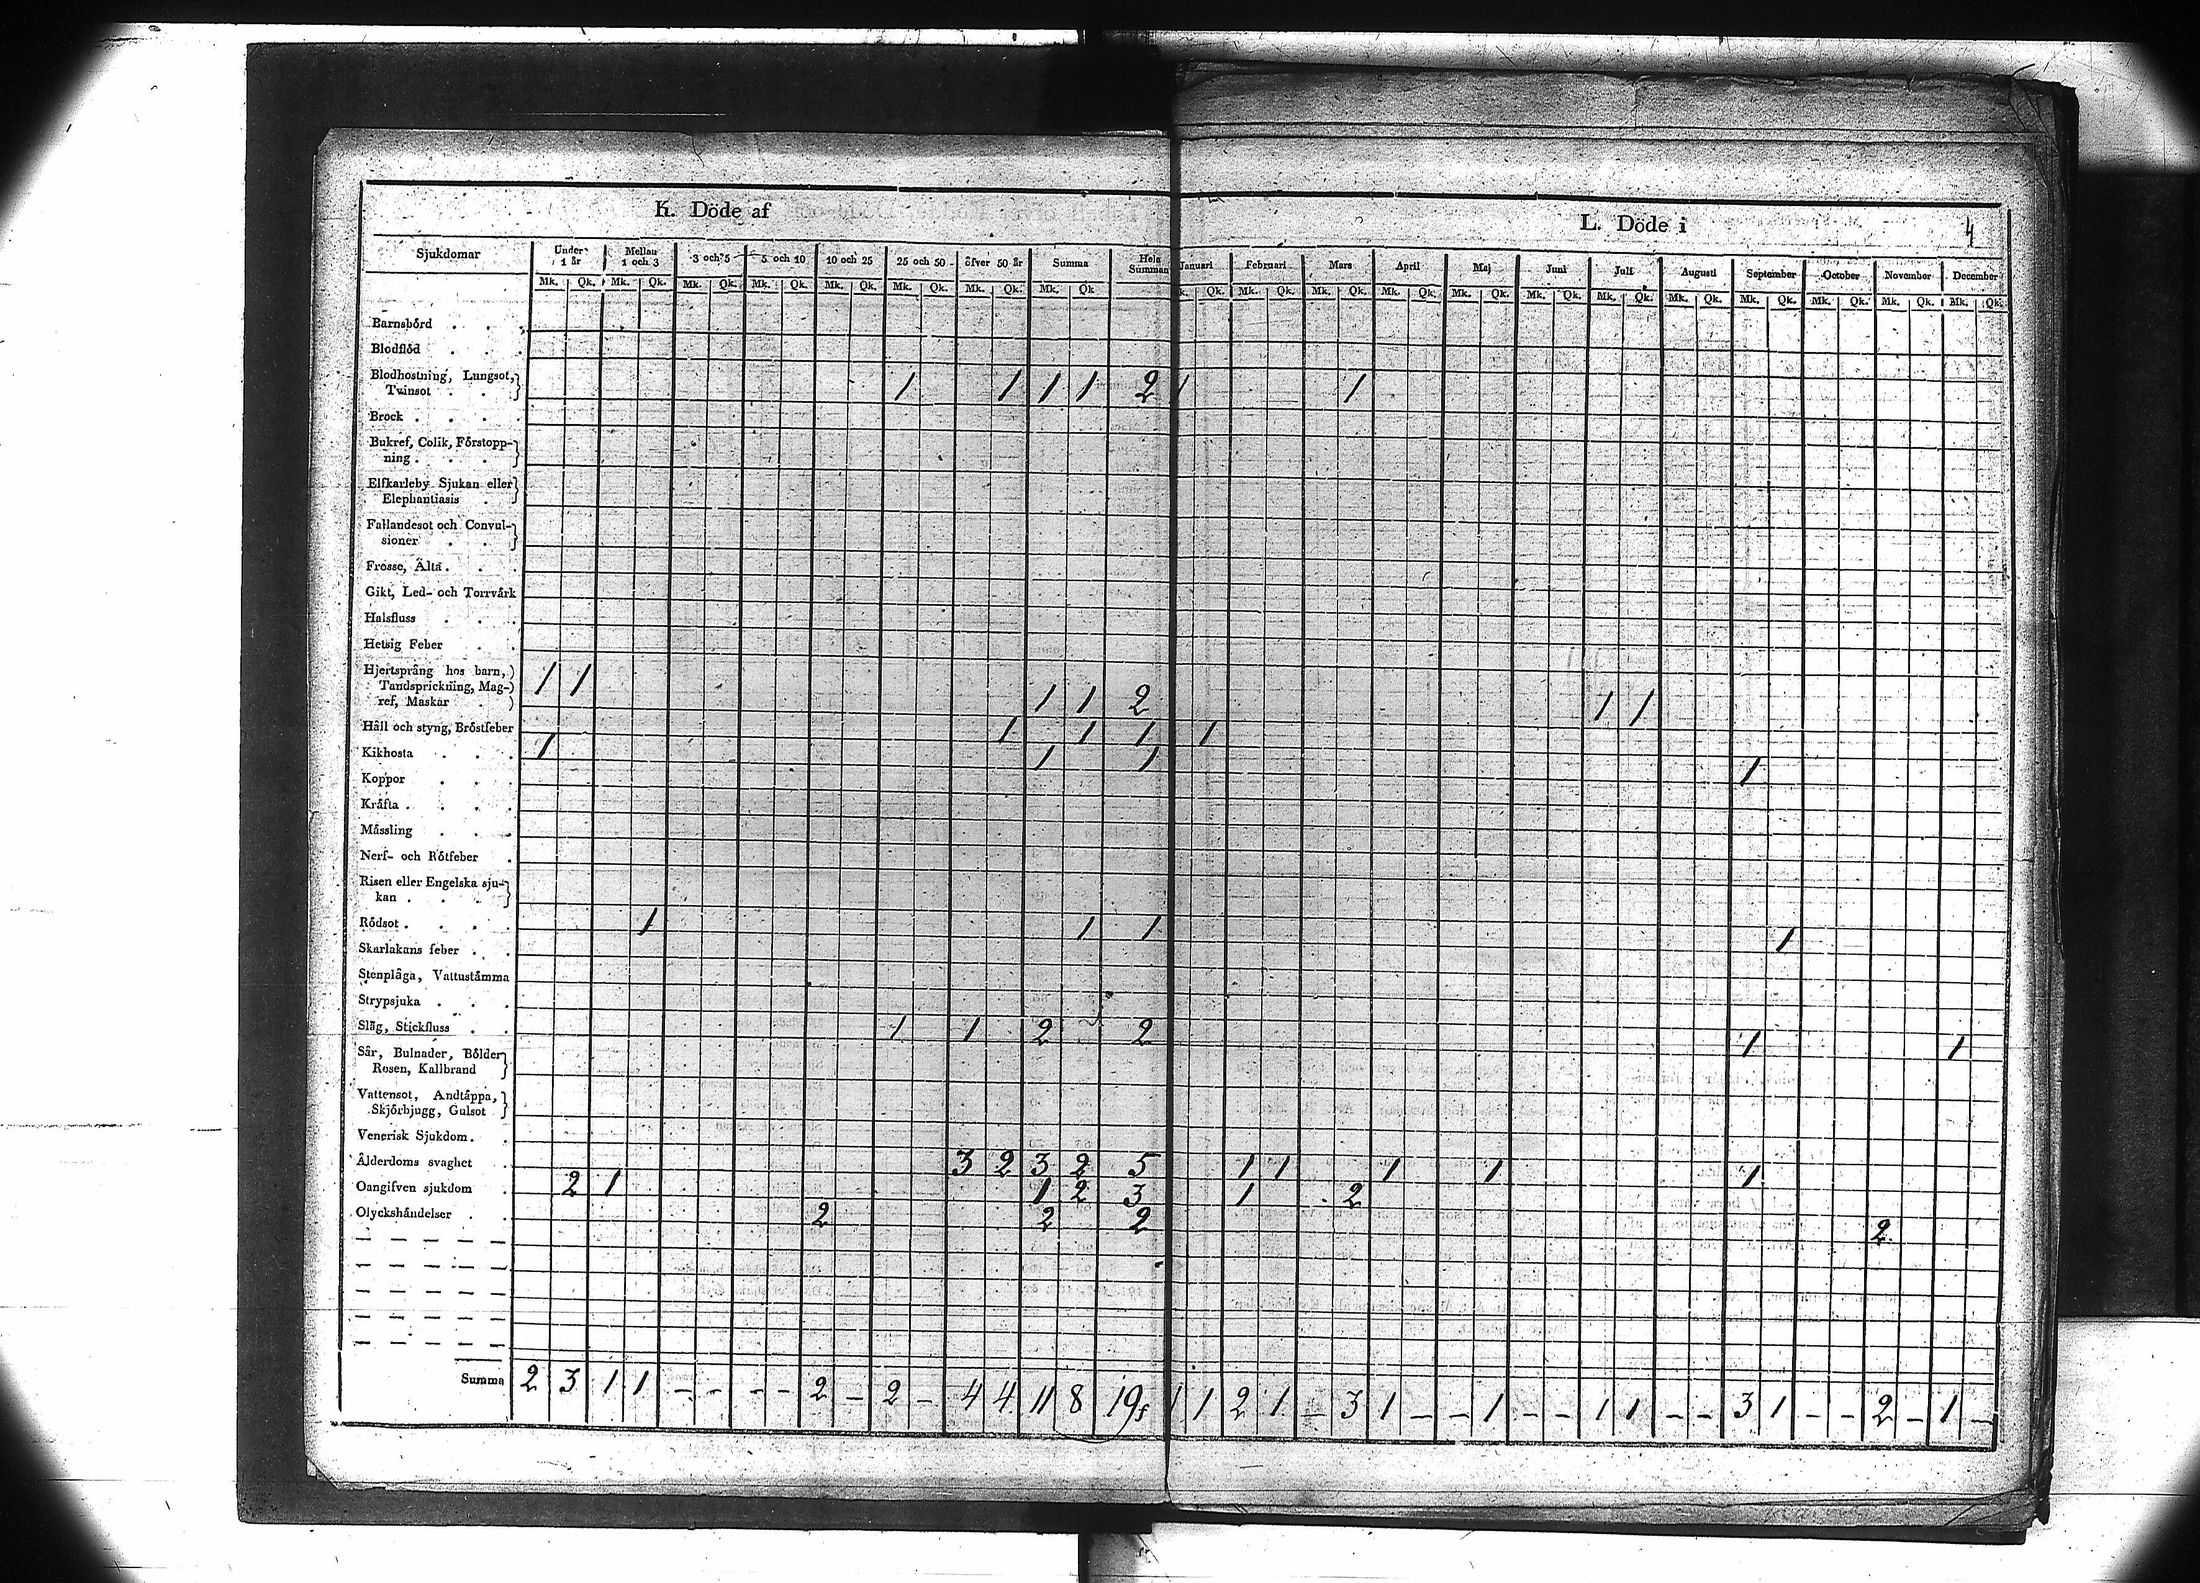 K. Döde af
L. Döde i
4
Sjukdomar Under 1 år Mellan 1 och 3 3 och 5 5 och 10 10 och 25 25 och 50 öfver 50 år Summa Hela Summan Januari Februari Mars April Maj Juni Juli Augusti September October November December
Mk. Qk. Mk. Qk. Mk. Qk. Mk. Qk. Mk. Qk. Mk. Qk. Mk. Qk. Mk. Qk k. Qk. Mk. Qk. Mk. Qk. Mk. Qk. Mk. Qk. Mk. Qk. Mk. Qk. Mk. Qk. Mk. Qk. Mk. Qk. Mk. Qk. Mk. Qk.
Barnsbörd . . .
Blodflöd . . .
Blodhostning, Lungsot,
Twinsot . . 1 1 1 1 2 1 1
Brock . . . .
Bukref, Colik, Förstopp-
ning . . . .
Elfkarleby Sjukan eller
Elephantiasis .
Fallandesot och Convul-
sioner . .
Frosse, Älta . . .
Gikt, Led- och Torrvärk
Halsfluss . . .
Hetsig Feber . .
Hjertsprång hos barn,
Tandsprickning, Mag- 1 1
ref, Maskar . 1 1 2 1 1
Håll och styng, Bröstfeber 1 1 1 1
Kikhosta . . . 1 1 1 1
Koppor . . .
Kräfta . . . .
Mässling . . .
Nerf- och Rötfeber .
Risen eller Engelska sju-
kan . . . .
Rödsot . . . . 1 1 1 1
Skarlakans feber . .
Stenplåga, Vattustämma
Strypsjuka . . .
Slag, Stickfluss . . 1 1 2 2 1 1
Sår, Bulnader, Bölder
Rosen, Kallbrand
Vattensot, Andtäppa,
Skjörbjugg, Gulsot
Venerisk Sjukdom . .
Ålderdoms svaghet . 3 2 3 2 5 1 1 1 1 1
Oangifven sjukdom . 2 1 1 2 3 1 2
Olyckshändelser . . 2 2 2 2
Summa 2 3 1 1 - - - - 2 - 2 - 4 4 11 8 19 1 1 2 1 - 3 1 - - 1 - - 1 1 - - 3 1 - - 2 - 1 -